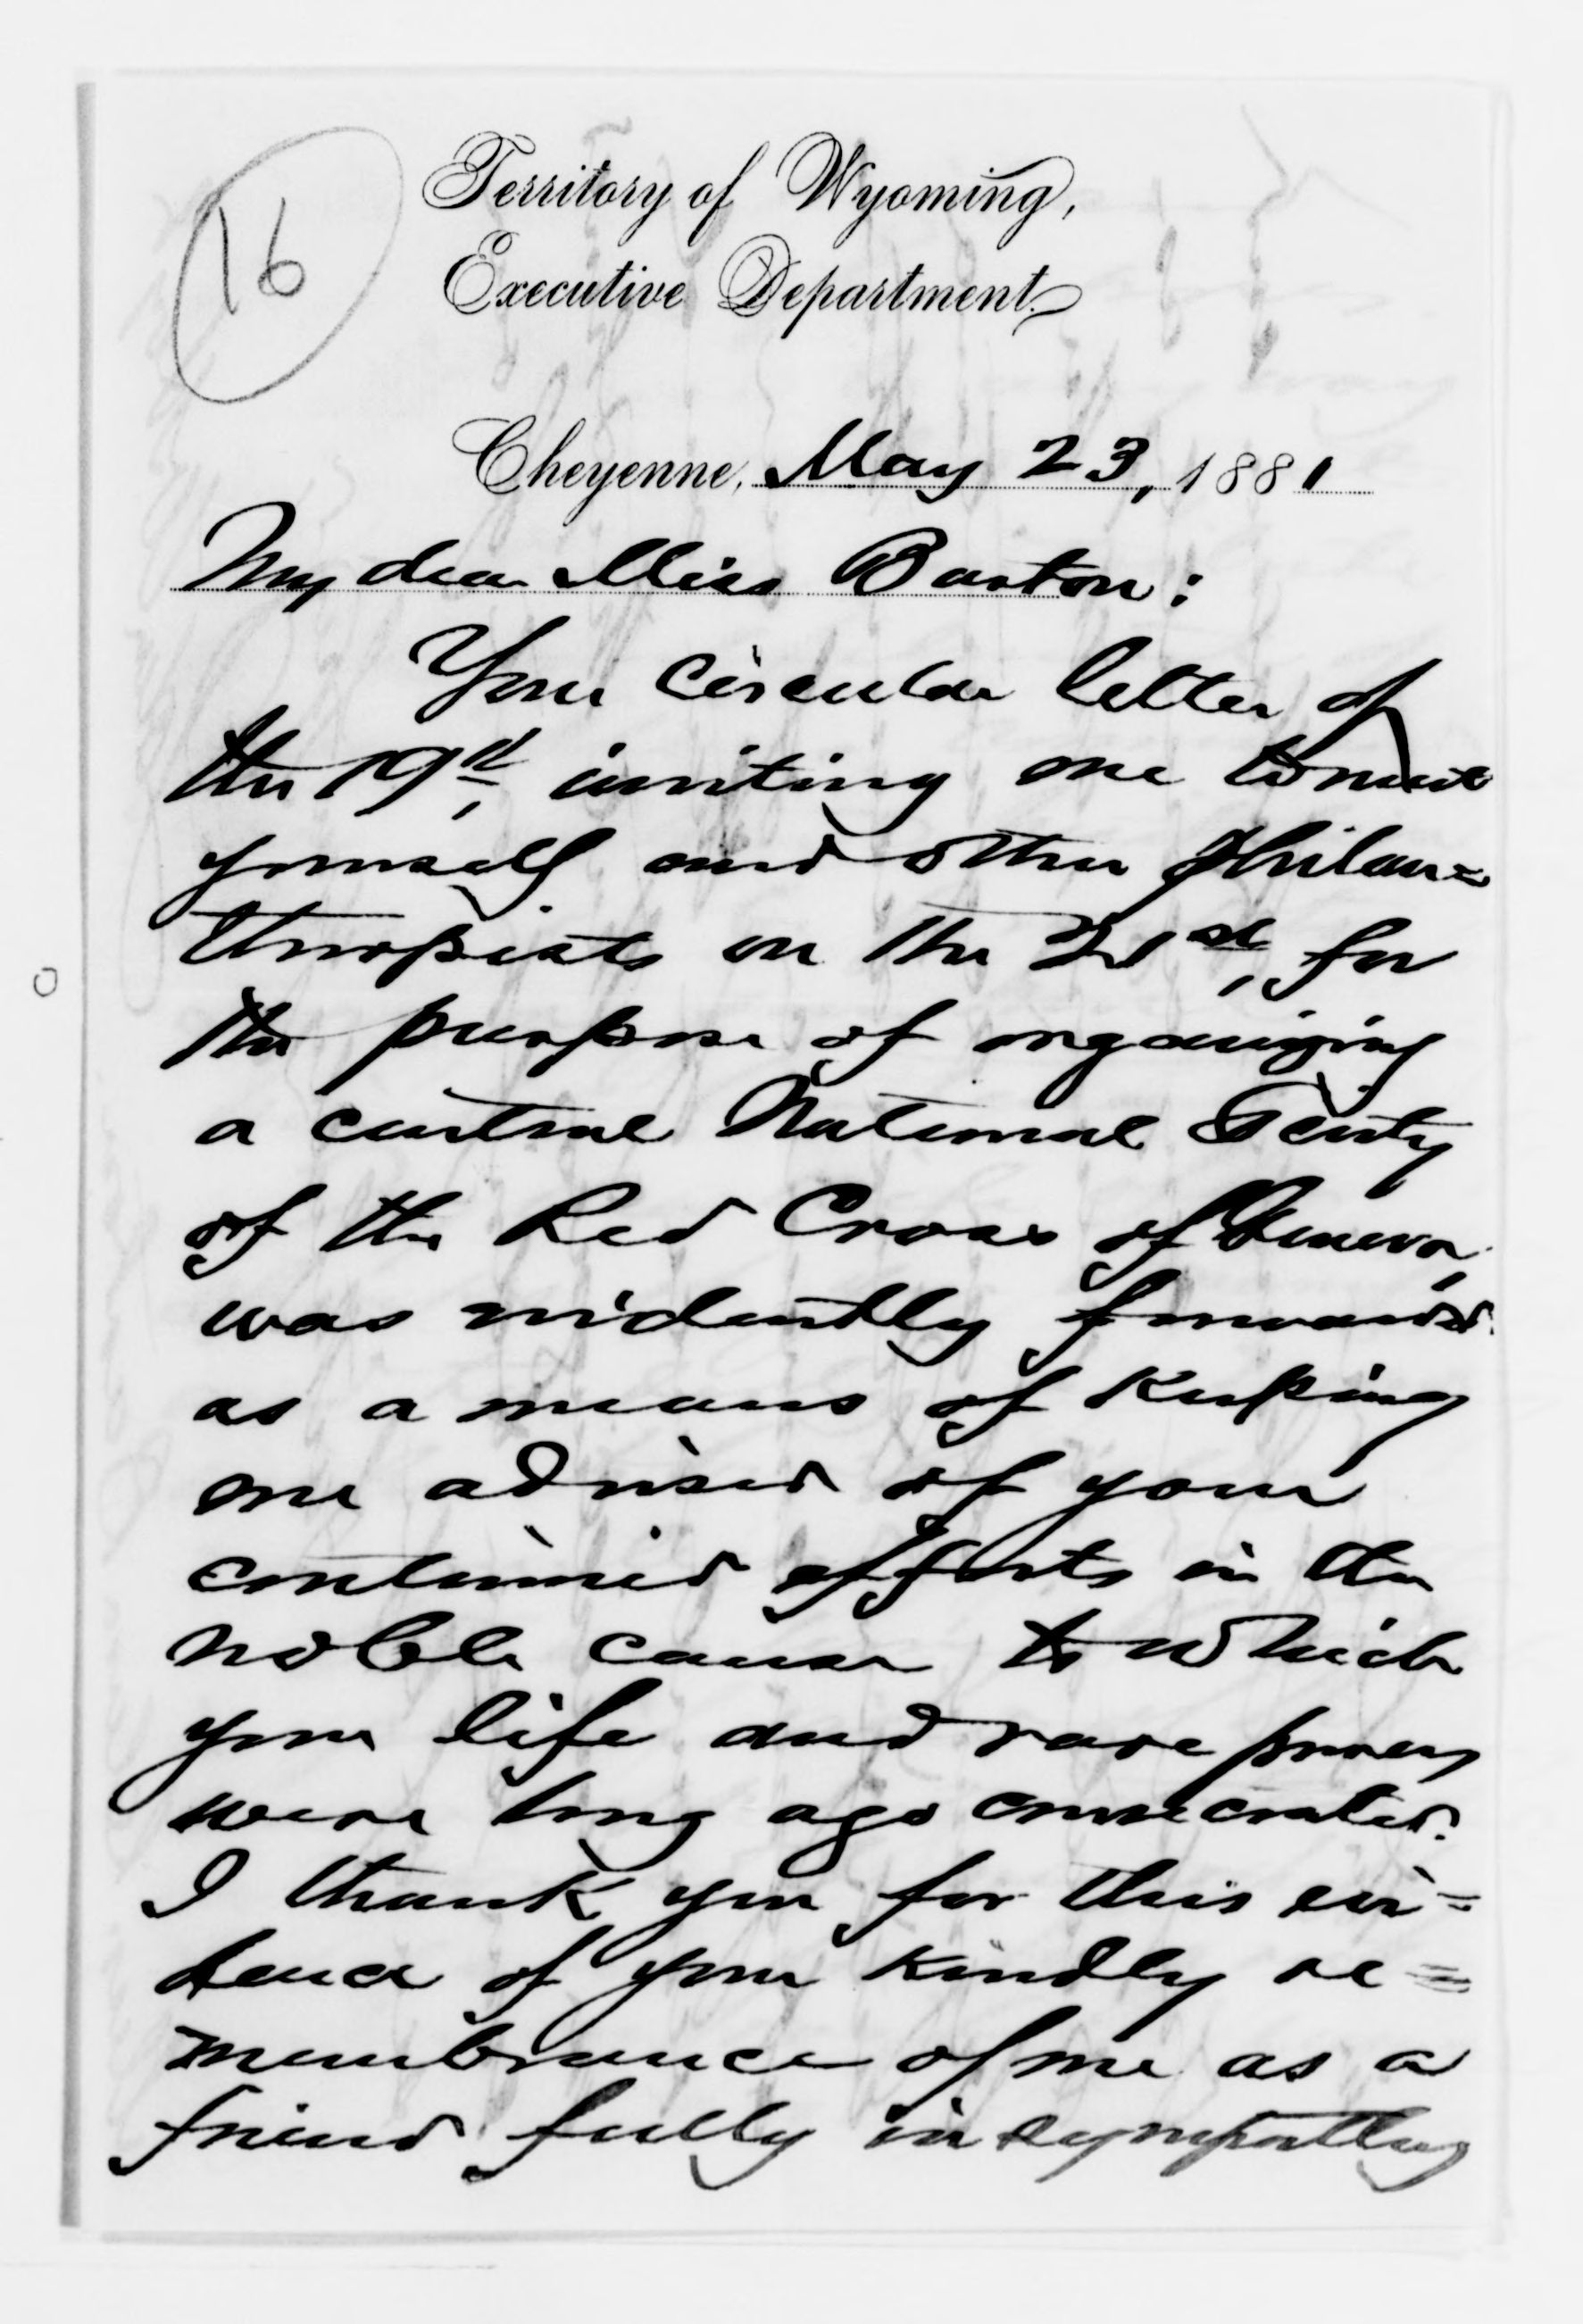 16
Territory of Wyoming,
Executive Department.
Cheyenne, May 23, 1881
My dear Miss Barton:
Your circular letter of
the 19th, inviting me to meet
yourself and other philan=
thropists on the 21st, for
the purpose of organizing
a central National Society
of the Red Cross of Geneva,
was evidently forwarded
as a means of keeping
me advised of your
continued efforts in the
noble cause to which
your life and rare powers
were long ago consecrated.
I thank you for this evi=
dence of your kindly re=
membrance of me as a
friend fully in sympathy